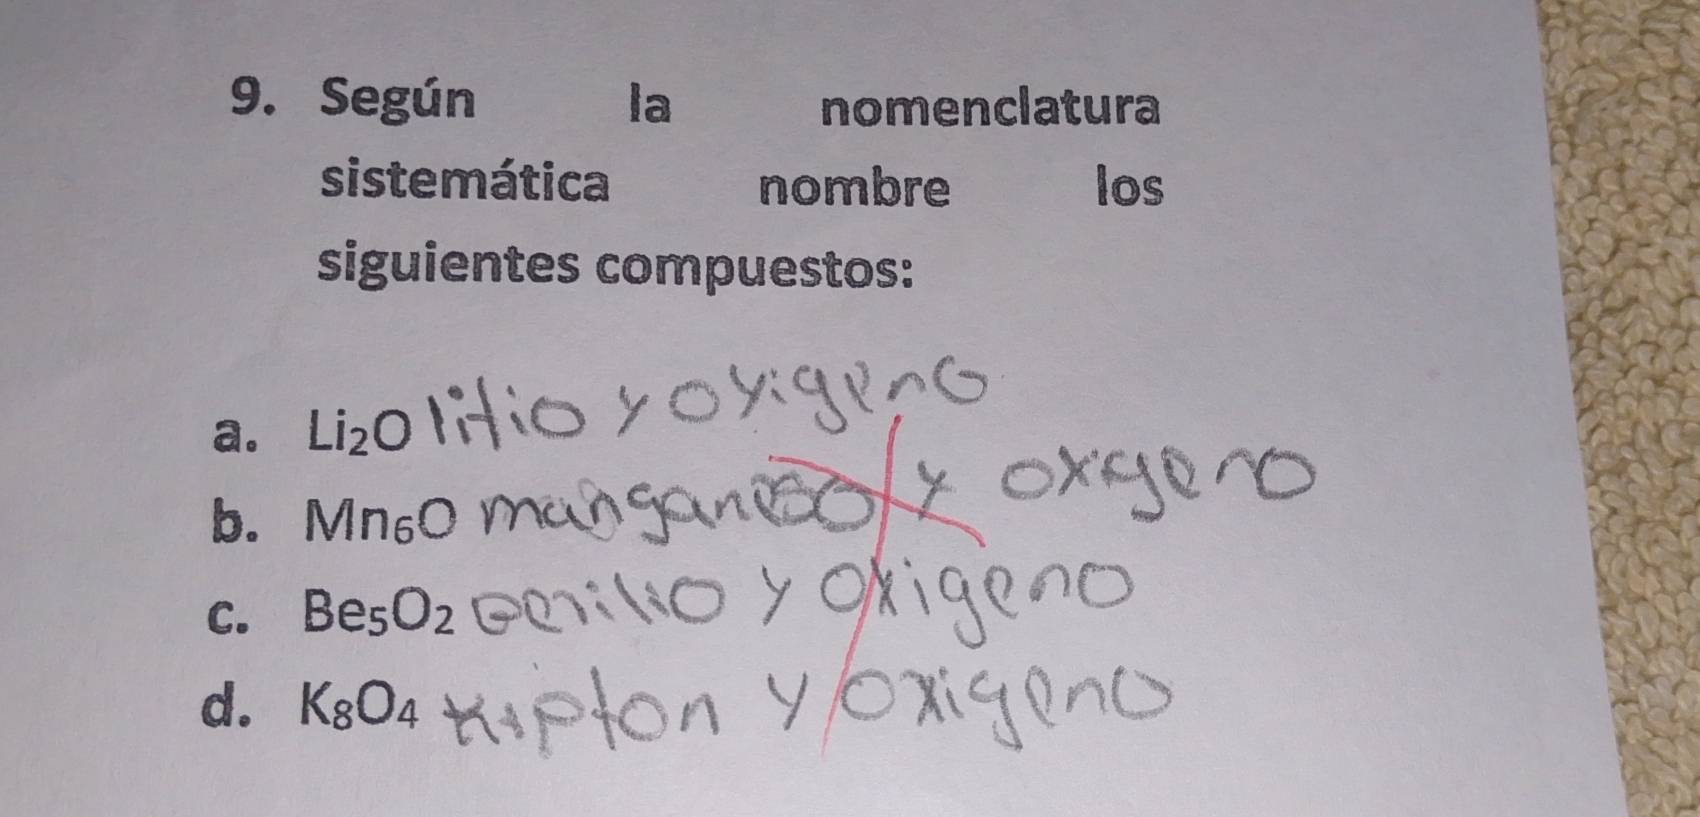 9. Según la nomenclatura
sistemática nombre los
siguientes compuestos:
a. Li₂O litio y oxigeno
b. Mn₆O manganeso y oxigeno
c. Be₅O₂ Berilio y oxigeno
d. K₈O₄ Kripton y oxigeno